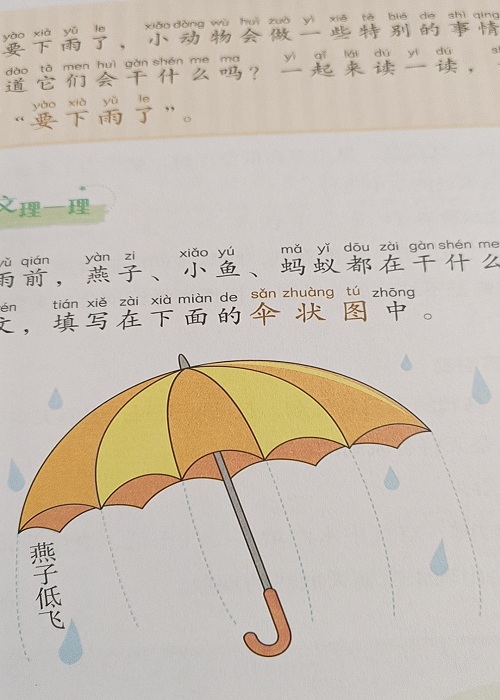 yào xià yǔ le xiǎo dòng wù huì zuò yì xiē tè bié de shì qing
要下雨了，小动物会做一些特别的事情
dào tā men huì gàn shén me ma yì qǐ lái dú yi dú
道它们会干什么吗？一起来读一读，
yào xià yǔ le
“要下雨了”。
文理一理
yǔ qián yàn zi xiǎo yú mǎ yǐ dōu zài gàn shén me
雨前，燕子、小鱼、蚂蚁都在干什么
tián xiě zài xià miàn de sǎn zhuàng tú zhōng
文，填写在下面的伞状图中。
燕子低飞